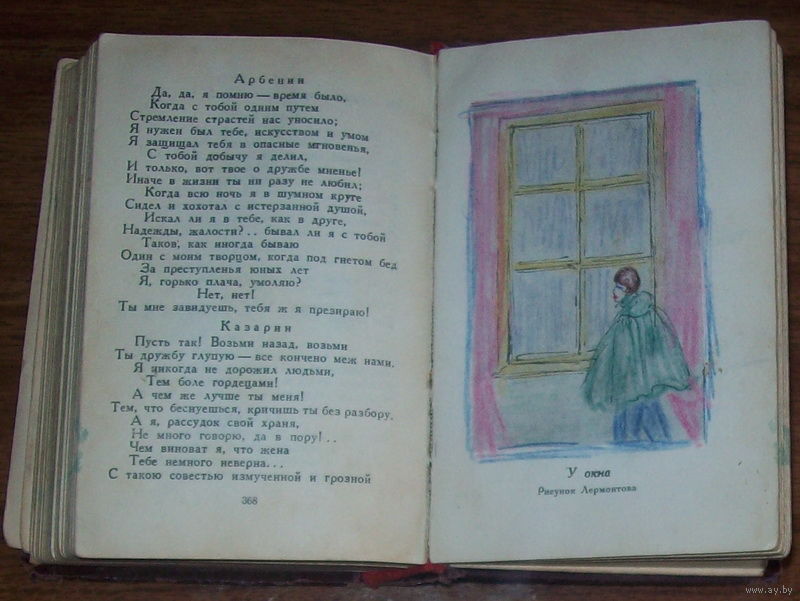 Арбенин
Да, да, я помню — время было,
Когда с тобой одним путем
Стремление страстей нас уносило;
Я нужен был тебе, искусством и умом
Я защищал тебя в опасные мгновенья,
С тобой добычу я делил,
И только, вот твое о дружбе мненье!
Иначе в жизни ты ни разу не любил;
Когда всю ночь я в шумном круге
Сидел и хохотал с истерзанной душой,
Искал ли я в тебе, как в друге,
Надежды, жалости?.. бывал ли я с тобой
Таков, как иногда бываю
Один с моим творцом, когда под гнетом бед
За преступленья юных лет
Я, горько плача, умоляю?
Нет, нет!
Ты мне завидуешь, тебя ж я презираю!
Казарин
Пусть так! Возьми назад, возьми
Ты дружбу глупую — все кончено меж нами.
Я никогда не дорожил людьми,
Тем боле гордецами!
А чем же лучше ты меня!
Тем, что беснуешься, кричишь ты без разбору,
А я, рассудок свой храня,
Не много говорю, да в пору!..
Чем виноват я, что жена
Тебе немного неверна...
С такою совестью измученной и грозной
368
У окна
Рисунок Лермонтова
www.ay.by